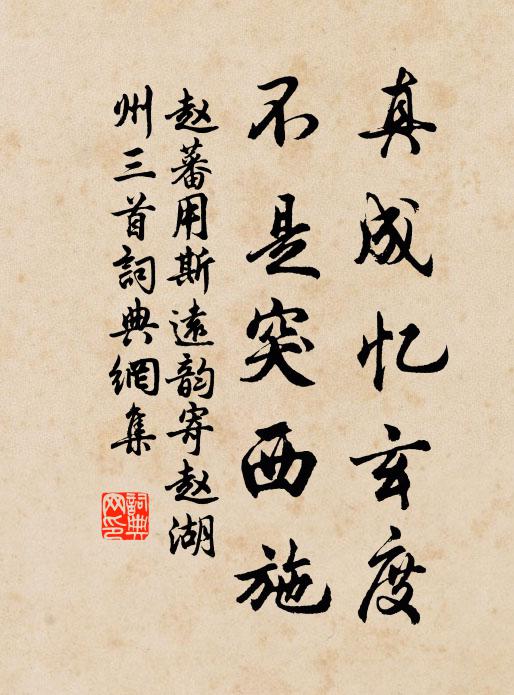 真成忆玄度
不是突西施
赵蕃用斯遠韵寄赵湖
州三首詞典網集
詞典
网印